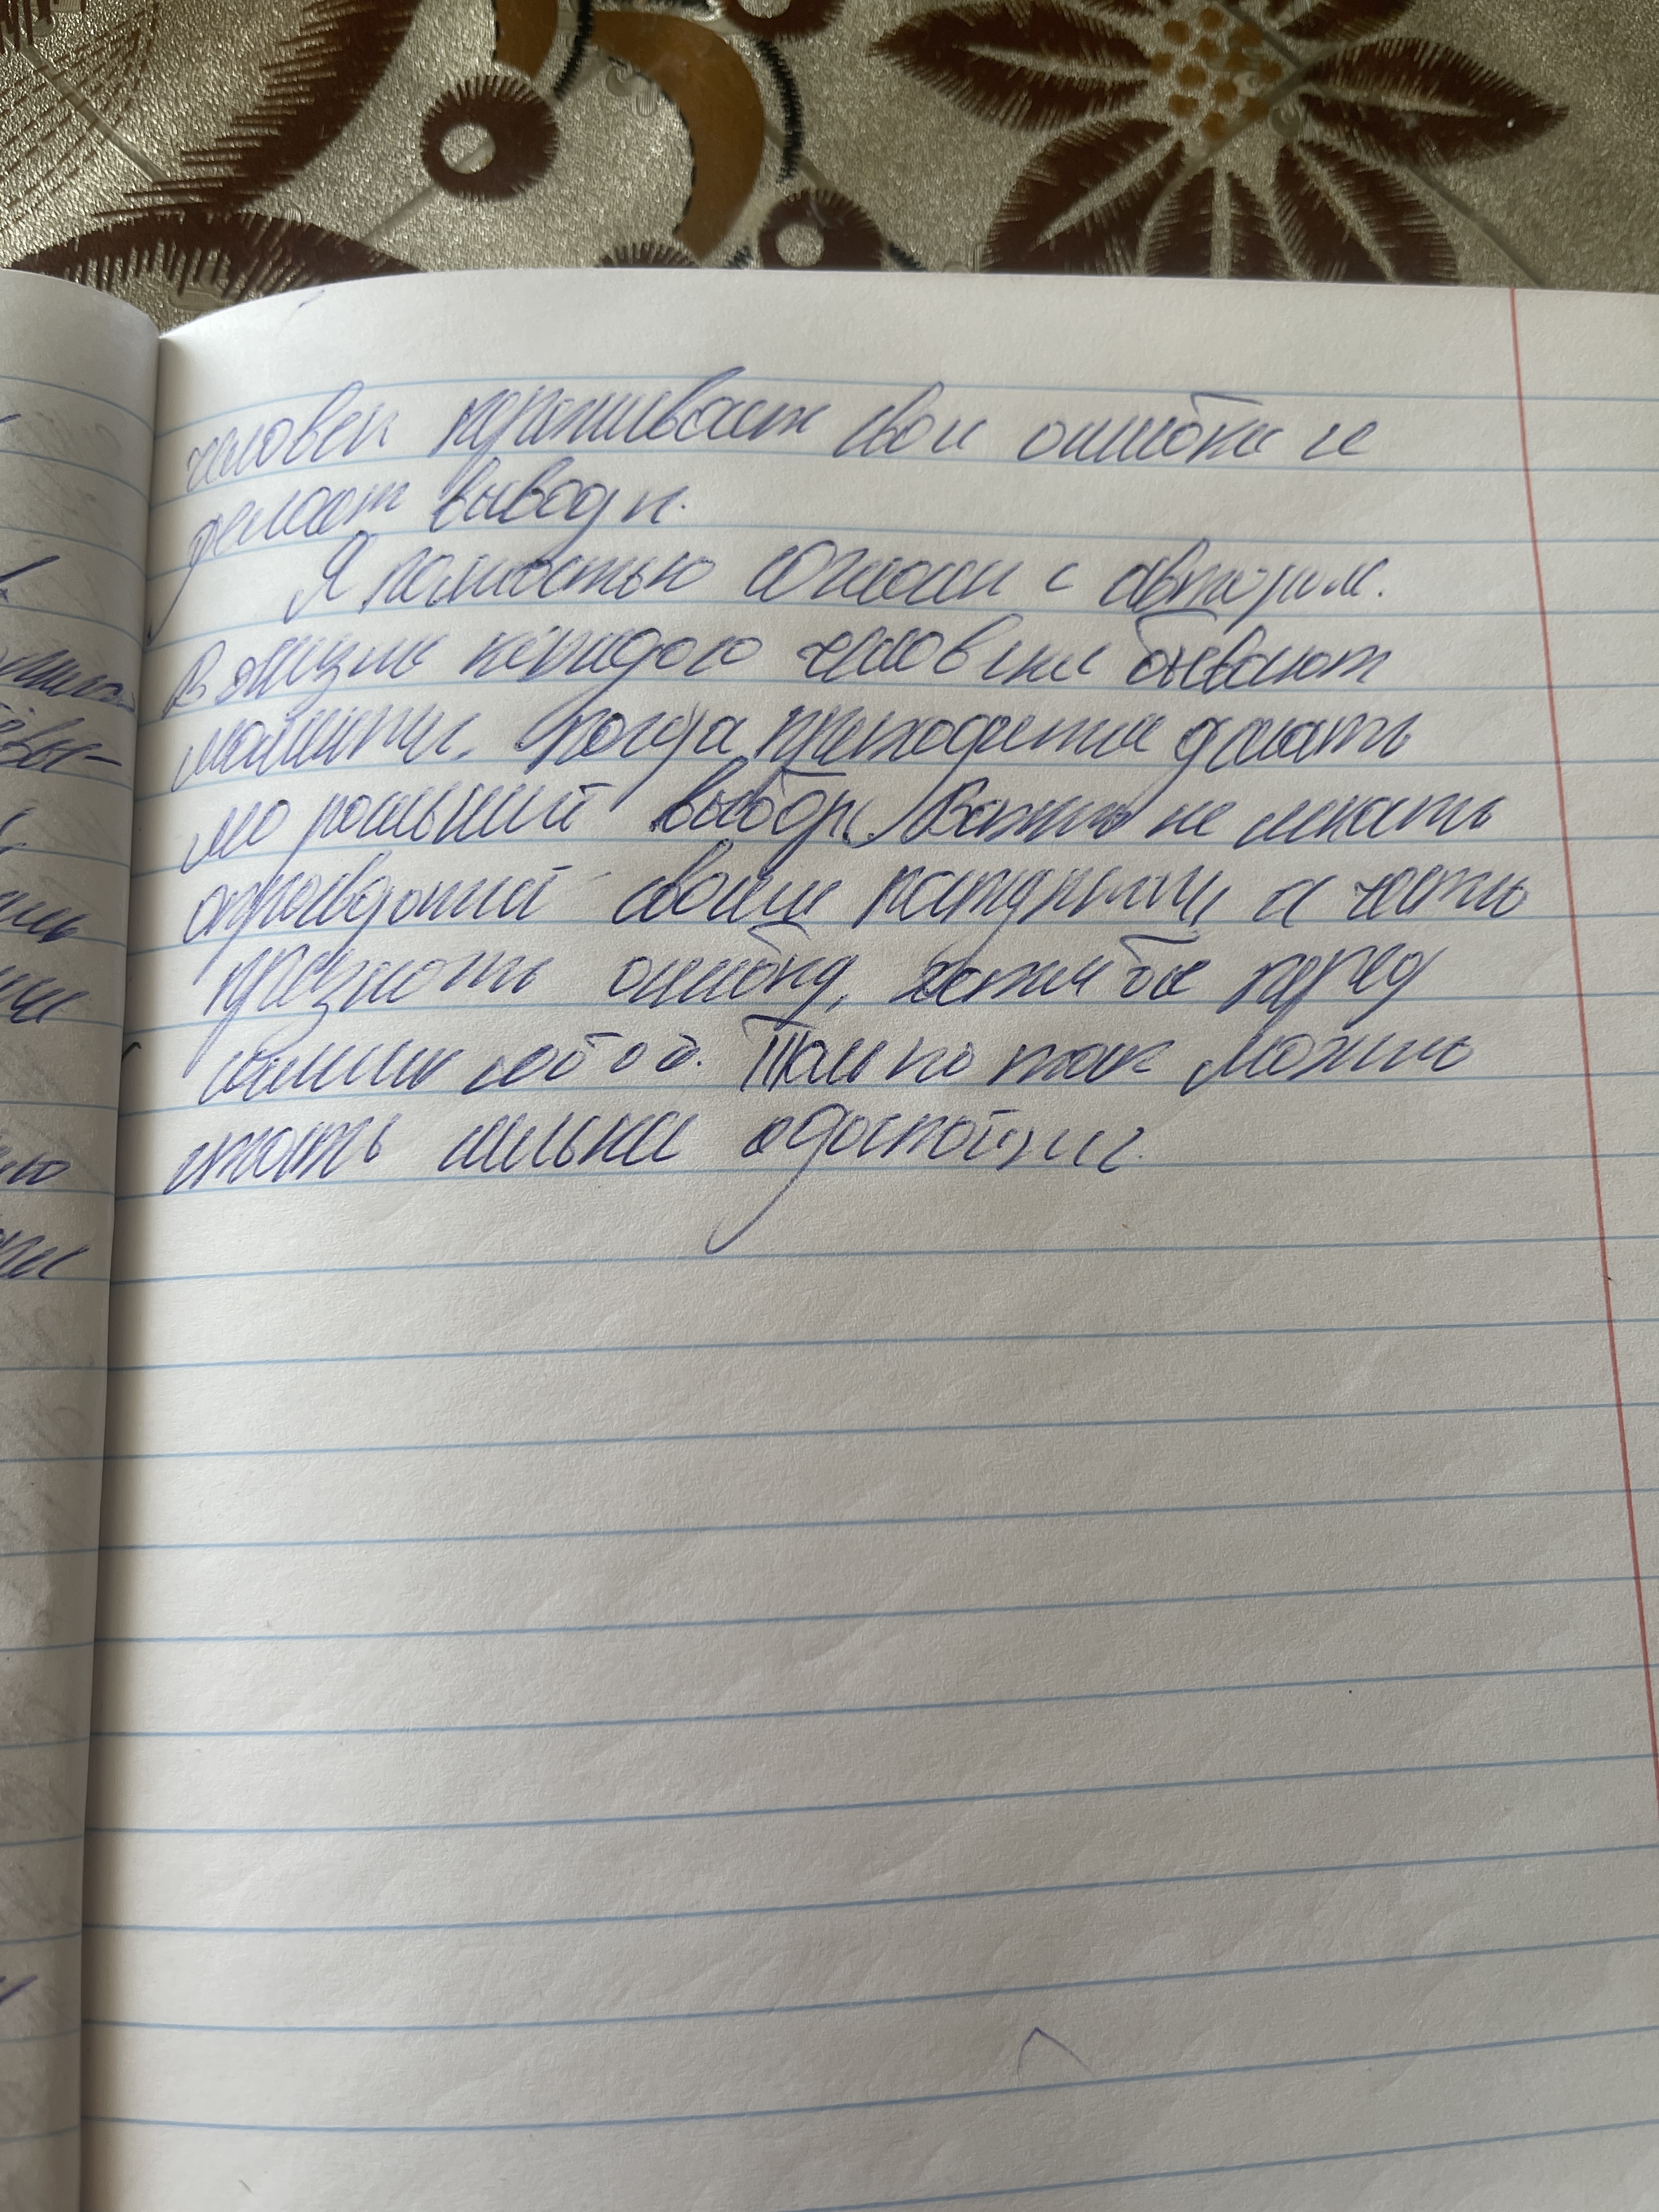 человек проживает свои ошибки и
делает выводы.
Я полностью согласен с автором.
В жизни каждого человека бывают
моменты, когда приходится делать
моральный выбор. Важно не искать
оправданий своим поступкам, а честно
признать ошибку, хотя бы перед
самим собой. Только так можно
стать